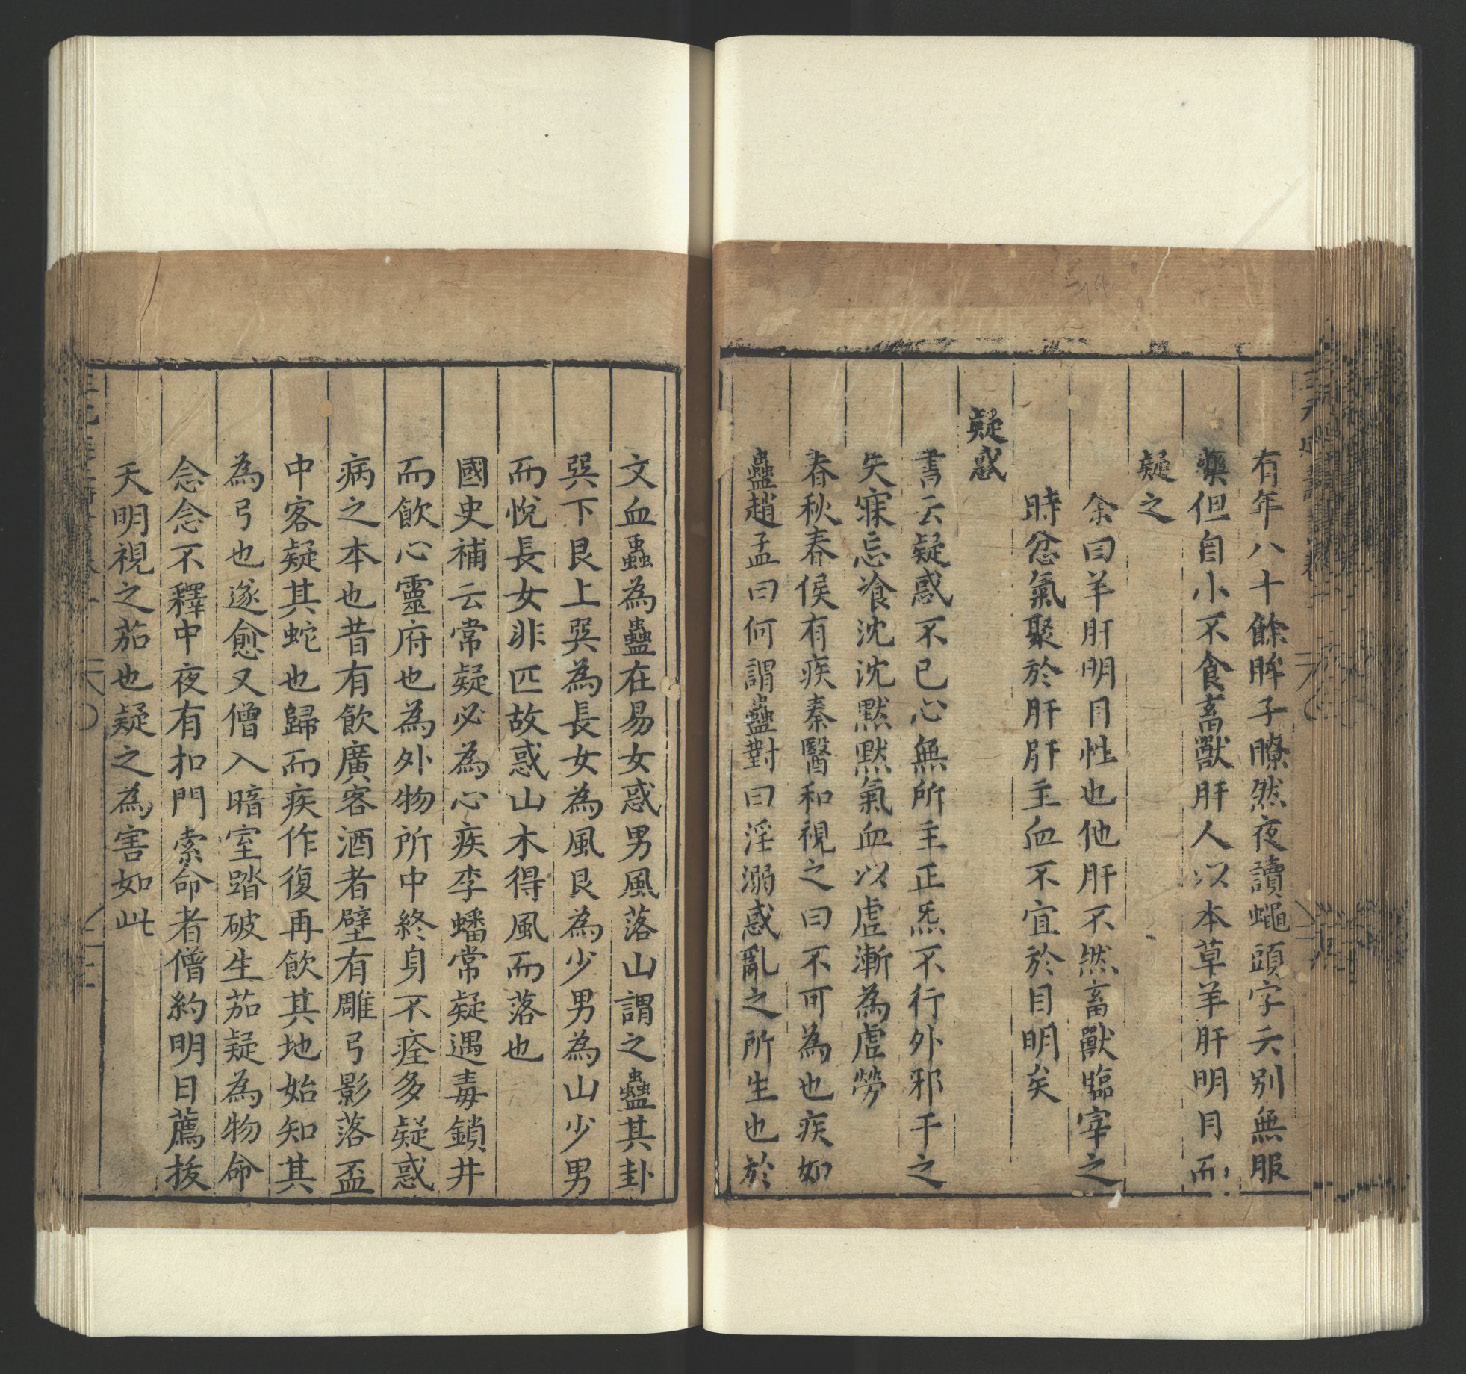 有年八十餘眸子瞭然夜讀蠅頭字云別無服
藥但自小不食畜獸肝人以本草羊肝明目而
疑之
余曰羊肝明目性也他肝不然畜獸臨宰之
時忿氣聚於肝肝主血不宜於目明矣
疑惑
書云疑惑不已心無所主正炁不行外邪干之
失寐忘飡沈沈默默氣血以虛漸為虛勞
春秋春侯有疾秦醫和視之曰不可為也疾如
蠱趙孟曰何謂蠱對曰淫溺惑亂之所生也於
文血蟲為蠱在易女惑男風落山謂之蠱其卦
巽下艮上巽為長女為風艮為少男為山少男
而悅長女非匹故惑山木得風而落也
國史補云常疑必為心疾李蟠常疑遇毒鎖井
而飲心靈府也為外物所中終身不痊多疑惑
病之本也昔有飲廣客酒者壁有雕弓影落盃
中客疑其蛇也歸而疾作復再飲其地始知其
為弓也遂愈又僧入暗室踏破生茄疑為物命
念念不釋中夜有扣門索命者僧約明日薦拔
天明視之茄也疑之為害如此